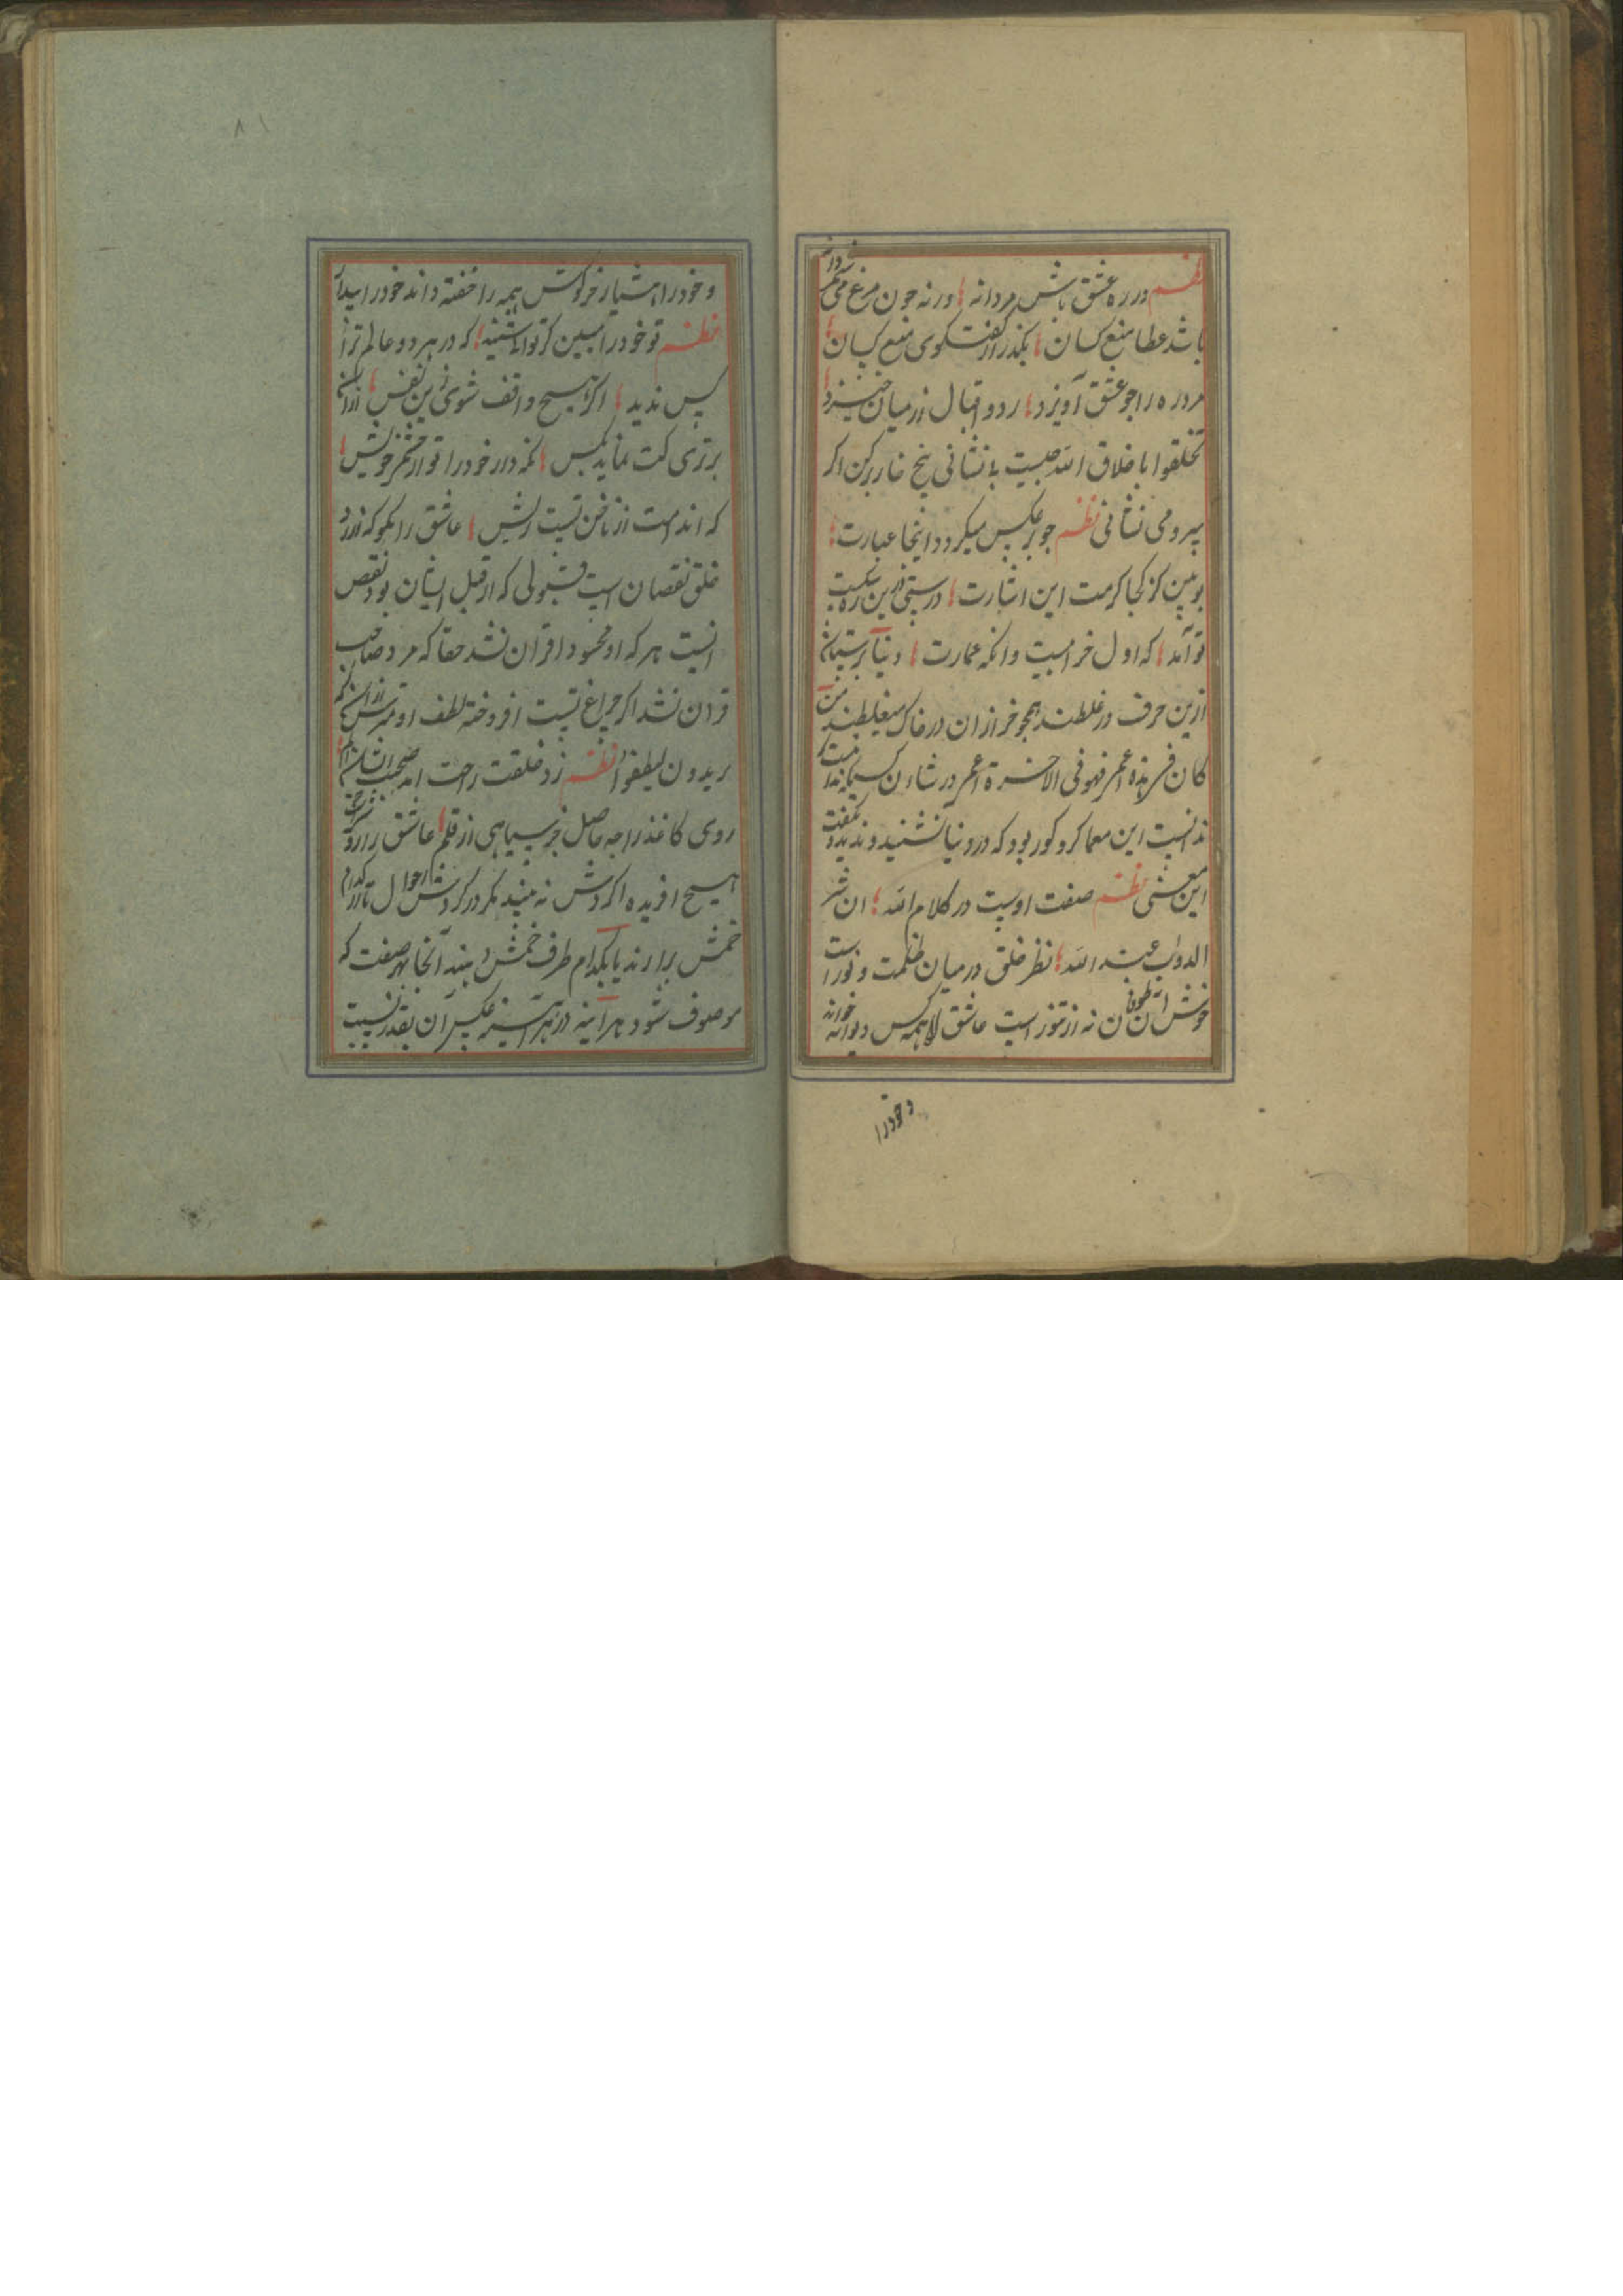 نظم در ره عشق باش مردانه ورنه چون مرغ می دانه
باشد عطا منع کسان بگذر از گفتگوی منع کسان
مرد ره را جو عشق آویزد رد و اقبال از میان خیزد
تخلقوا باخلاق الله چیست تا نشانی بیخ خار برکن اگر
پیرو می نشانی نظم جو بر عکس میکردد اینجا عبارت
بو بین کز کجا کرمت این اشارت درستی درین ره شکست
تو آمد که اول خرابیست وانکه عمارت دنیا پرستان
ازین حرف در غلطند همچو خر ازان در خاک میغلطند من
کان فی هذه اعمی فهو فی الاخرة اعمی در شان
ندانست این معما کر و کور بود که در دنیا نشنید و ندید و نگفت
این معنی نظم صفت اوست در کلام الله ان شر
الدواب عند الله نظر خلق در میان ظلمت و نور است
خوش ان طوفان نه از تنور است عاشق را همه کس دیوانه خواند
و خودرا
۸۱
و خودرا هشیار خرکوش همه را خفته داند خودرا بیدار
نظم تو خودرا مبین کر توانستی که در هر دو عالم ترا
پس ندید اگر هیچ واقف شوی زین نفس ازان
برتری کت نماید بکس نکه دار خودرا تو از فخر خویش
که اندامت از ناخن تست ریش عاشق را بکو که از رد
خلق نقصان است قبولی که از قبل ایشان بود نقص
انست هر که او محسود اقران نشد حقا که مرد صاحب
قران نشد اگر چراغ تست افروخته لطف او مترس ازان که
یریدون لیطفوا نظم زد خلقت راحت امد
روی کاغذ را چه حاصل جز سیاهی از قلم عاشق را
هیچ افریده اگر دش نه بیند مکر در کردش احوال تا از کدام
خمش برارند یا بکدام طرف خمش و بیند آنجا بهر صفت که
موصوف شود هر آینه در هر آینه عکس آن بقدر نسبت